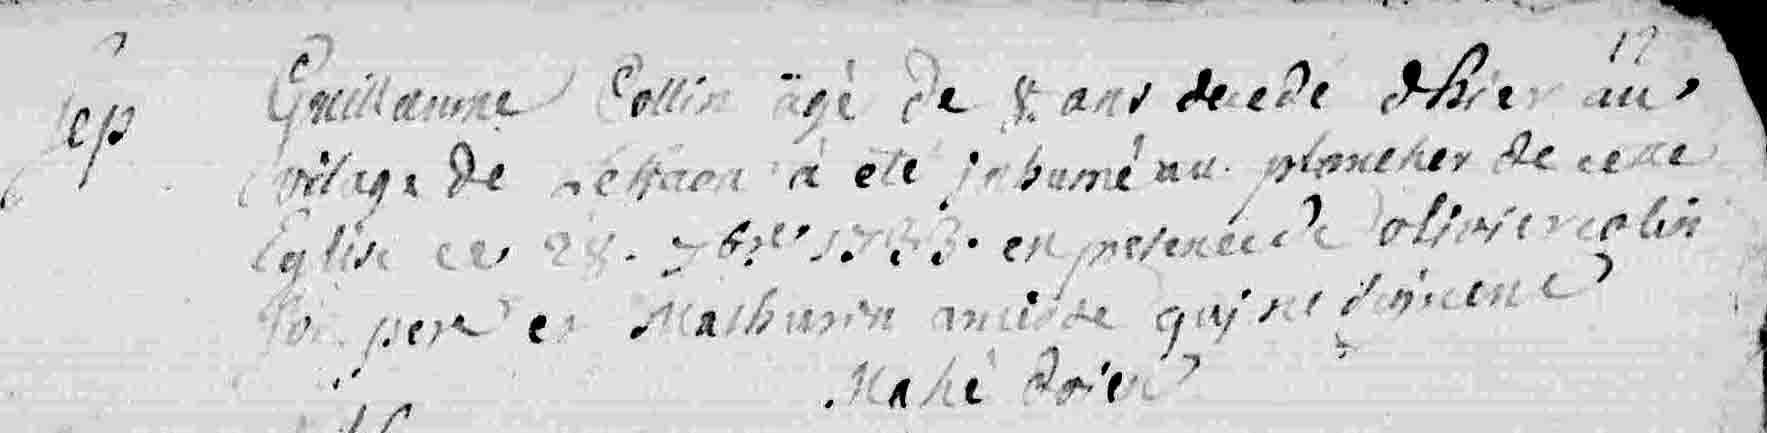 12
Sep Guillaume Collin agé de 8 ans decedé dhier au
vilage de a été inhumé au plancher de cette
Eglise ce 28. 7bre 1733. en presence de olivier colin
son pere et Mathurin qui ne signent
Mahé doien